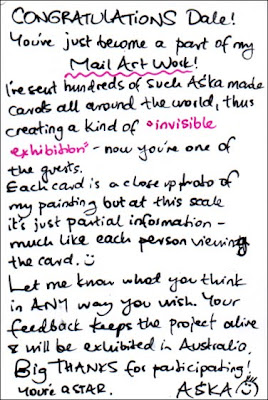 CONGRATULATIONS Dale!
You've just become a part of my
Mail Art Work!
I've sent hundreds of such Aśka made
cards all around the world, thus
creating a kind of "invisible
exhibition" - now you're one of
the guests.
Each card is a close up photo of
my painting but at this scale
it's just partial information -
much like each person viewing
the card. :)
Let me know what you think
in ANY way you wish. Your
feedback keeps the project alive
& will be exhibited in Australia.
Big THANKS for participating!
You're a STAR. AŚKA :)